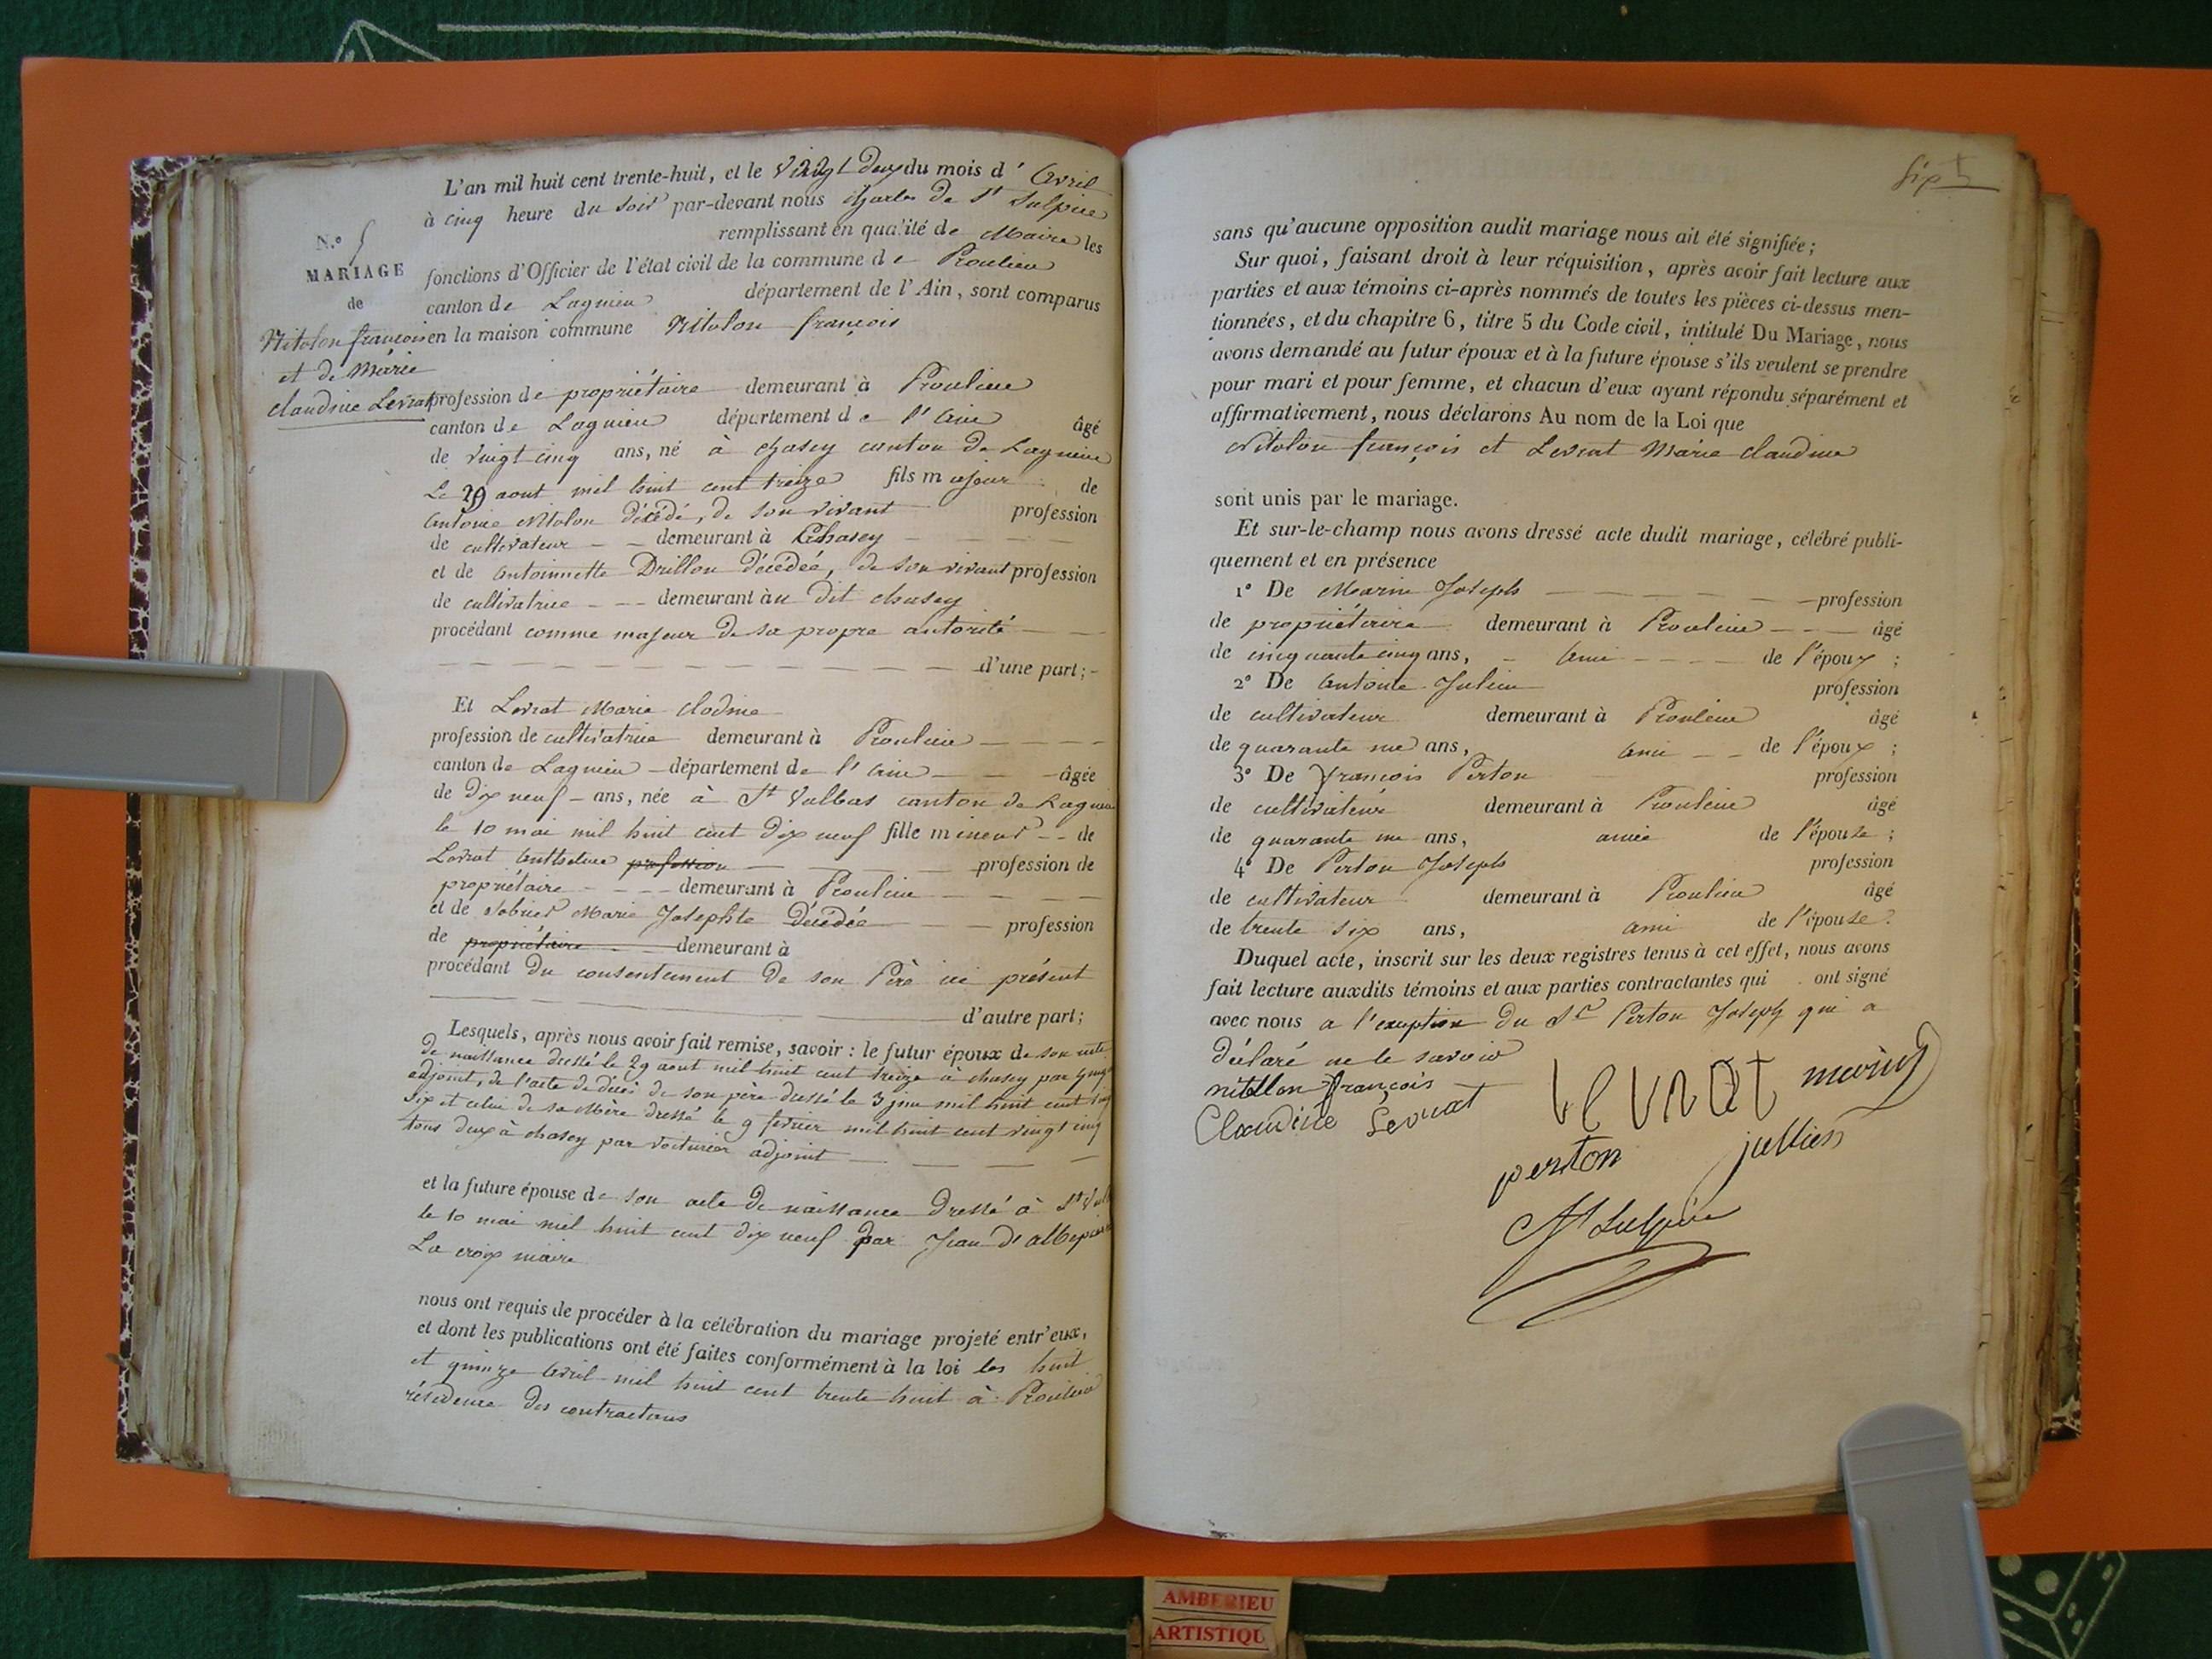 L'an mil huit cent trente-huit, et le vingt deux du mois d' Avril
à cinq heure du soir par-devant nous Charles De St Sulpice
remplissant en qualité de Maire les
N.° 5
MARIAGE
de
Nitolon françois
et de Marie
claudine Levrat
fonctions d'Officier de l'état civil de la commune de Proulieu
canton de Lagnieu département de l'Ain, sont comparus
en la maison commune Nitolon françois
profession de propriétaire demeurant à Proulieu
canton de Lagnieu département de l'Ain âgé
de vingt cinq ans, né à chasey canton de Lagnieu
Le 29 aout mil huit cent treize fils majeur de
Antoine Nitolon décédé, de son vivant profession
de cultivateur demeurant à Chasey
et de Antoinnette Drillon décédée, de son vivant profession
de cultivatrice demeurant au dit chasey
procédant comme majeur de sa propre autorité
d'une part;
Et Levrat Marie clodine
profession de cultivatrice demeurant à Proulieu
canton de Lagnieu département de l'Ain âgée
de dix neuf ans, née à St Vulbas canton de Lagnieu
le 10 mai mil huit cent dix neuf fille mineur de
Levrat Anthelme profession profession de
propriétaire demeurant à Proulieu
et de Marie Josephte décédée profession
de propriétaire demeurant à
procédant du consentement de son Père ici présent
d'autre part;
Lesquels, après nous avoir fait remise, savoir : le futur époux de son acte
de naissance dressé le 29 aout mil huit cent treize à chasey par
adjoint, de l'acte de décès de son père dressé le 3 juin mil huit cent vingt
six et celui de sa Mère dressé le 9 février mil huit cent vingt cinq
tous deux à chasey par voiturier adjoint
et la future épouse de son acte de naissance dressé à St Vul
le 10 mai mil huit cent dix neuf par Jean
La croix maire
nous ont requis de procéder à la célébration du mariage projeté entr'eux,
et dont les publications ont été faites conformément à la loi les huit
et quinze Avril mil huit cent trente huit à Proulieu
résidence des contractans
sans qu'aucune opposition audit mariage nous ait été signifiée;
Sur quoi, faisant droit à leur réquisition, après avoir fait lecture aux
parties et aux témoins ci-après nommés de toutes les pièces ci-dessus men-
tionnées, et du chapitre 6, titre 5 du Code civil, intitulé Du Mariage, nous
avons demandé au futur époux et à la future épouse s'ils veulent se prendre
pour mari et pour femme, et chacun d'eux ayant répondu séparément et
affirmativement, nous déclarons Au nom de la Loi que
Nitolon françois et Levrat Marie claudine
sont unis par le mariage.
Et sur-le-champ nous avons dressé acte dudit mariage, célébré publi-
quement et en présence
1° De Marin Joseph profession
de propriétaire demeurant à Proulieu âgé
de cinquante cinq ans, Ami de l'époux ;
2° De Antoine Julien profession
de cultivateur demeurant à Proulieu âgé
de quarante ans, Ami de l'époux ;
3° De François Perton profession
de cultivateur demeurant à Proulieu âgé
de quarante ans, amie de l'épouse ;
4° De Perton Joseph profession
de cultivateur demeurant à Proulieu âgé
de trente six ans, Ami de l'épouse.
Duquel acte, inscrit sur les deux registres tenus à cet effet, nous avons
fait lecture auxdits témoins et aux parties contractantes qui ont signé
avec nous a l'exception du Sr Perton Joseph qui a
déclaré ne le savoir
nitollon françois
Claudine Levrat
levrat
marin
perton
jullien
St Sulpice
AMBERIEU
ARTISTIQU